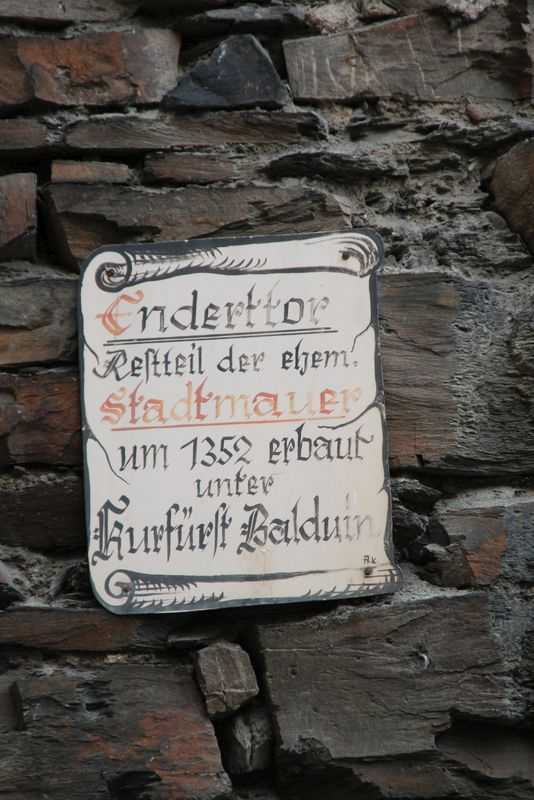 Enderttor
Restteil der ehem.
Stadtmauer
um 1352 erbaut
unter
Kurfürst Balduin